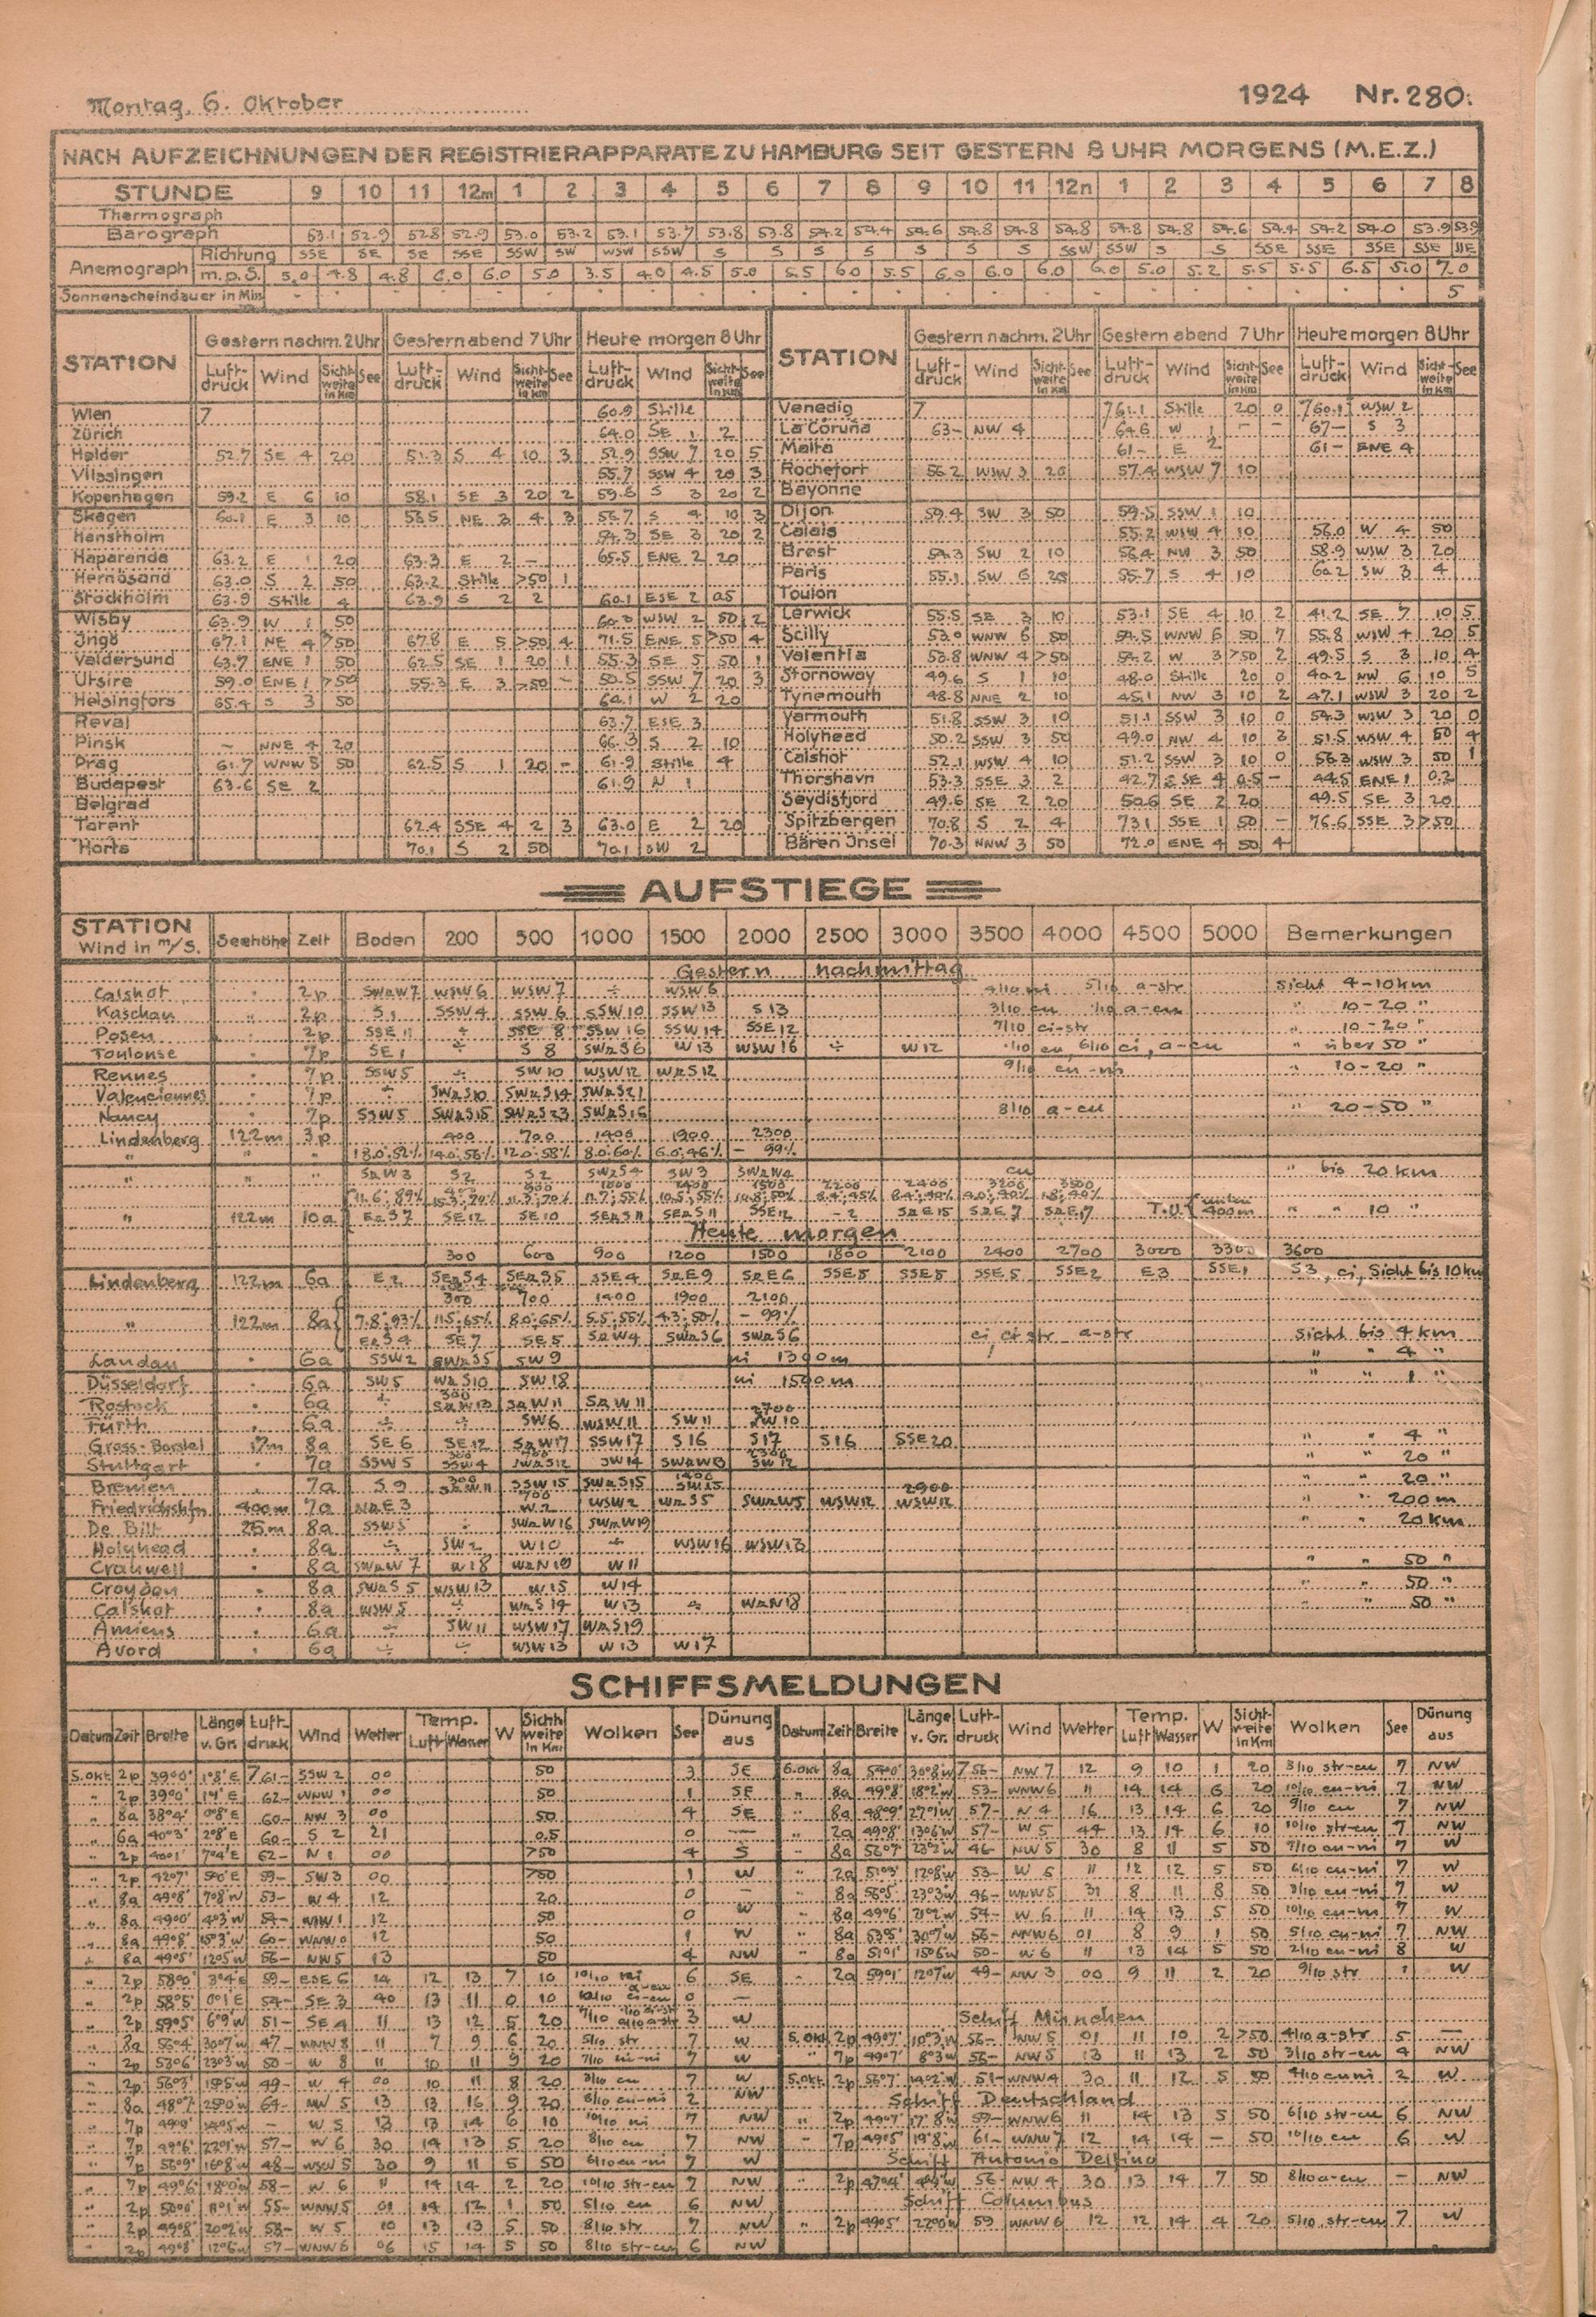 Montag, 6. Oktober 1924 Nr. 280.
NACH AUFZEICHNUNGEN DER REGISTRIERAPPARATE ZU HAMBURG SEIT GESTERN 8 UHR MORGENS (M.E.Z.)
STUNDE 9 10 11 12m 1 2 3 4 5 6 7 8 9 10 11 12n 1 2 3 4 5 6 7 8
Thermograph
Barograph 53.1 52.9 52.8 52.9 53.0 53.2 53.1 53.7 53.8 53.8 54.2 54.4 54.6 54.8 54.8 54.8 54.8 54.8 54.6 54.4 54.2 54.0 53.9 53.9
Anemograph Richtung SSE SE SE SSE SSW SW WSW SSW S S S S S S S SSW SSW S S SSE SSE SSE SSE SSE
m.p.S. 5.0 4.8 4.8 6.0 6.0 5.0 3.5 4.0 4.5 5.0 5.5 6.0 5.5 6.0 6.0 6.0 6.0 5.0 5.2 5.5 5.5 6.5 5.0 7.0
Sonnenscheindauer in Min. 5
STATION Gestern nachm. 2 Uhr Gestern abend 7 Uhr Heute morgen 8 Uhr STATION Gestern nachm. 2 Uhr Gestern abend 7 Uhr Heute morgen 8 Uhr
Luft-druck Wind Sicht-weite in Km See Luft-druck Wind Sicht-weite in Km See Luft-druck Wind Sicht-weite in Km See Luft-druck Wind Sicht-weite in Km See Luft-druck Wind Sicht-weite in Km See Luft-druck Wind Sicht-weite in Km See
Wien 7 60.9 Stille Venedig 7 761.1 Stille 20 0 760.1 WSW 2
Zürich 64.0 SE 1 2 La Coruña 63- NW 4 64.6 W 1 - - 67- S 3
Helder 52.7 SE 4 20 51.3 S 4 10 3 52.9 SSW 7 20 5 Malta 61- E 2 61- ENE 4
Vlissingen 55.7 SSW 4 20 3 Rochefort 56.2 WSW 3 20 57.4 WSW 7 10
Kopenhagen 59.2 E 6 10 58.1 SE 3 20 2 59.6 S 3 20 2 Bayonne
Skagen 60.1 E 3 10 58.5 NE 3 4 3 56.7 S 4 10 3 Dijon 59.4 SW 3 50 59.5 SSW 1 10
Hanstholm 54.3 SE 3 20 2 Calais 55.2 WSW 4 10 56.0 W 4 50
Haparanda 63.2 E 1 20 63.3 E 2 - 65.5 ENE 2 20 Brest 54.3 SW 2 10 56.4 NW 3 50 58.9 WSW 3 20
Hernösand 63.0 S 2 50 63.2 Stille >50 1 Paris 55.1 SW 6 20 55.7 S 4 10 60.2 SW 3 4
Stockholm 63.9 Stille 4 63.9 S 2 2 60.1 ESE 2 0.5 Toulon
Wisby 63.9 W 1 50 60.8 WSW 2 50 2 Lerwick 55.5 SE 3 10 53.1 SE 4 10 2 41.2 SE 7 10 5
Jngö 67.1 NE 4 >50 67.8 E 5 >50 4 71.5 ENE 5 >50 4 Scilly 53.0 WNW 6 50 54.5 WNW 6 50 7 55.8 WSW 4 20 5
Valdersund 63.7 ENE 1 50 62.5 SE 1 20 1 55.3 SE 5 50 1 Valentia 53.8 WNW 4 >50 54.2 W 3 >50 2 49.5 S 3 10 4
Utsire 59.0 ENE 1 >50 55.3 E 3 >50 - 50.5 SSW 7 20 3 Stornoway 49.6 S 1 10 48.0 Stille 20 0 40.2 NW 6 10 5
Helsingfors 65.4 S 3 50 60.1 W 2 20 Tynemouth 48.8 NNE 2 10 45.1 NW 3 10 2 47.1 WSW 3 20 2
Reval 63.7 ESE 3 Yarmouth 51.8 SSW 3 10 51.1 SSW 3 10 0 54.3 WSW 3 20 0
Pinsk - NNE 4 20 66.3 S 2 10 Holyhead 50.2 SSW 3 50 49.0 NW 4 10 3 51.5 WSW 4 50 4
Prag 61.7 WNW 5 50 62.5 S 1 20 - 61.9 Stille 4 Calshot 52.1 WSW 4 10 51.2 SSW 3 10 0 56.3 WSW 3 50 1
Budapest 63.6 SE 2 61.9 N 1 Thorshavn 53.3 SSE 3 2 42.7 ESE 4 0.5 - 44.5 ENE 1 0.2
Belgrad Seydisfjord 49.6 SE 2 20 50.6 SE 2 20 49.5 SE 3 20
Tarent 62.4 SSE 4 2 3 63.0 E 2 20 Spitzbergen 70.8 S 2 4 73.1 SSE 1 50 - 76.6 SSE 3 >50
Horta 70.1 S 2 50 70.1 SW 2 Bären Jnsel 70.3 NNW 3 50 72.0 ENE 4 50 4
AUFSTIEGE
STATION Wind in m/s. Seehöhe Zeit Boden 200 500 1000 1500 2000 2500 3000 3500 4000 4500 5000 Bemerkungen
Gestern nachmittag
Calshot 2p SWzW7 WSW 6 WSW 7 ÷ WSW 6 5/10 a-str Sicht 4-10km
Kaschau 2p S 1 SSW 4 SSW 6 SSW 10 SSW 13 S 13 3/10 cu 1/10 a-cu " 10-20 "
Posen 2p SSE 11 ÷ SSE 8 SSW 16 SSW 14 SSE 12 9/10 ci-str " 10-20 "
Toulouse 7p SE 1 ÷ S 8 SWzS6 W 13 WSW 16 ÷ W 12 cu, 6/10 ci, a-cu " über 50 "
Rennes 7p SSW 5 ÷ SW 10 WSW 12 WzS 12 9/10 cu-ni " 10-20 "
Valenciennes 7p ÷ SWzS10 SWzS14 SWzS21
Nancy 7p SSW 5 SWzS15 SWzS23 SWzS16 8/10 a-cu " 20-50 "
Lindenberg 122m 3p 400 700 1400 1900 2300
" " " 18.0:52% 14.0:56% 12.0:58% 8.0:60% 6.0:46% - 99%
" " SzW 3 S 2 S 2 SWzS4 SW 3 SWzW4 cu " bis 20 km
" 122m 10a EzS7 SE 12 SE 10 SEzS11 SEzS11 SSE 12 - 2 SzE 15 SzE 7 SzE 17 T.U. unten 400m " " 10 "
Heute morgen
300 600 900 1200 1500 1800 2100 2400 2700 3000 3300 3600
Lindenberg 122m 6a E 2 SEzS4 SEzS5 SSE 4 SzE 9 SzE 6 SSE 5 SSE 5 SSE 5 SSE 2 E 3 SSE 1 S 3, ci, Sicht bis 10 km
300 700 1400 1900 2100
" 122m 8a 7.8:93% 11.5:65% 8.0:65% 5.5:55% 4.3:50% - 99%
EzS4 SE 7 SE 5 SzW4 SWzS6 SWzS6 ci, ci-str a-str Sicht bis 4 km
Landau 6a SSW 2 SWzS5 SW 9 ni 1300m " " 4 "
Düsseldorf 6a SW 5 WzS10 SW 18 ni 1500m " " 1 "
Rostock 6a ÷ SzW 13 SzW 11 SzW 11
Fürth 6a ÷ ÷ SW 6 WSW 11 SW 11 2700 SW 10
Gross-Borstel 17m 8a SE 6 SE 12 SzW17 SSW 17 S 16 S 17 S 16 SSE 20 " " 4 "
Stuttgart 7a SSW 5 SSW 4 SWzS12 SW 14 SWzW13 SW 12 " " 20 "
Bremen 7a S 9 SSW 15 SWzS15 " " 20 "
Friedrichshfn 400m 7a NzE 3 W 2 WSW 2 WzS5 SWzW5 WSW 12 WSW 12 " " 200 m
De Bilt 25m 8a SSW 5 ÷ SWzW16 SWzW19 " " 20 km
Holyhead 8a ÷ SW 2 W 10 ÷ WSW 16 WSW 13
Cranwell 8a SWzW 7 W 18 WzN 19 W 11 " " 50 "
Croydon 8a SWzS 5 WSW 13 W 15 W 14 " " 50 "
Calshot 8a WSW 5 ÷ WzS 14 W 13 ÷ WzN 18 " " 50 "
Amiens 6a ÷ SW 11 WSW 17 WzS19
Avord 6a ÷ ÷ WSW 13 W 13 W 17
SCHIFFSMELDUNGEN
Datum Zeit Breite Länge v. Gr. Luft-druck Wind Wetter Temp. Luft Wasser W Sicht-weite in Km Wolken See Dünung aus Datum Zeit Breite Länge v. Gr. Luft-druck Wind Wetter Temp. Luft Wasser W Sicht-weite in Km Wolken See Dünung aus
5.Okt 2p 39°0' 1°8'E 761- SSW 2 00 50 3 SE 6.Okt 8a 54°0' 30°8'W 756- NW 7 12 9 10 1 20 3/10 str-cu 7 NW
" 2p 39°0' 1°1'E 62- WNW 1 00 50 1 SE " 8a 49°8' 18°2'W 53- WNW 6 11 14 14 6 20 10/10 cu-ni 7 NW
" 8a 38°4' 0°8'E 60- NW 3 00 50 4 SE " 8a 48°9' 27°1'W 57- N 4 16 13 14 6 20 9/10 cu 7 NW
" 6a 40°3' 2°8'E 60- S 2 21 0.5 0 - " 2a 49°8' 13°6'W 57- W 5 44 13 14 6 10 10/10 str-cu 7 NW
" 2p 40°1' 7°4'E 62- N 1 00 >50 4 S " 8a 56°7' 23°2'W 46- NW 5 30 8 11 5 50 7/10 cu-ni 7 W
" 2p 42°7' 5°6'E 59- SW 3 00 >50 1 W " 2a 51°3' 12°8'W 53- W 6 11 12 12 5 50 6/10 cu-ni 7 W
" 8a 49°8' 7°8'W 53- W 4 12 20 0 - " 8a 56°5' 23°3'W 46- WNW 5 31 8 11 8 50 3/10 cu-ni 7 W
" 8a 49°0' 4°3'W 54- WSW 1 12 50 0 W " 8a 49°6' 21°2'W 54- W 6 11 14 13 5 50 10/10 cu-ni 7 W
" 8a 49°8' 15°3'W 60- WNW 0 12 50 1 W " 8a 53°5' 30°7'W 56- NNW 6 01 8 9 1 50 5/10 cu-ni 7 NW
" 8a 49°5' 12°5'W 56- NW 5 13 50 4 NW " 8a 51°1' 15°6'W 50- W 6 11 13 14 5 50 2/10 cu-ni 8 W
" 2p 58°0' 3°4'E 59- ESE 6 14 12 13 7 10 10/10 ni 6 SE " 2a 59°1' 12°7'W 49- NW 3 00 9 11 2 20 9/10 str 1 W
" 2p 58°5' 0°1'E 54- SE 3 40 13 11 0 10 10/10 ci-cu 0 -
" 2p 59°5' 6°9'W 51- SE 4 11 13 12 5 20 3 W Schiff München
" 8a 56°4' 30°7'W 47- WNW 8 11 7 9 6 20 5/10 str 7 W 5.Okt 2p 49°7' 10°3'W 56- NW 5 01 11 10 2 >50 4/10 a-str 5 -
" 2p 53°6' 23°3'W 50- W 8 11 10 11 9 20 7/10 cu-ni 7 W " 7p 49°7' 8°3'W 56- NW 5 13 11 13 2 50 3/10 str-cu 4 NW
" 2p 56°3' 15°5'W 49- W 4 00 10 11 8 20 3/10 cu 7 W 5.Okt 2p 56°7' 14°2'W 51- WNW 4 30 11 12 5 50 4/10 cu ni 2 W
" 8a 48°7' 25°0'W 64- NW 5 13 13 16 9 20 8/10 cu-ni 2 NW Schiff Deutschland
" 7p 49°8' 14°5'W - W 5 13 13 14 6 10 10/10 ni 7 NW " 2p 49°7' 17°8'W 59- WNW 6 11 14 13 5 50 6/10 str-cu 6 NW
" 7p 49°6' 22°1'W 57- W 6 30 14 13 5 20 8/10 cu 7 NW " 7p 49°5' 19°8'W 61- WNW 7 12 14 14 - 50 10/10 cu 6 W
" 7p 56°9' 16°8'W 48- WSW 5 30 9 11 5 50 6/10 cu-ni 7 W Schiff Antonio Delfino
" 7p 49°6' 18°0'W 58- W 6 11 14 14 2 20 10/10 str-cu 7 NW " 2p 47°4' 4°4'W 56- NW 4 30 13 14 7 50 8/10 a-cu - NW
" 2p 50°0' 11°1'W 55- WNW 5 01 14 12 1 50 5/10 cu 6 NW Schiff Columbus
" 2p 49°8' 20°2'W 58- W 5 10 13 13 5 50 8/10 str 7 NW " 2p 49°5' 22°0'W 59 WNW 6 12 12 14 4 20 5/10 str-cu 7 W
" 2p 49°8' 12°6'W 57- WNW 6 06 15 14 5 50 8/10 str-cu 6 NW